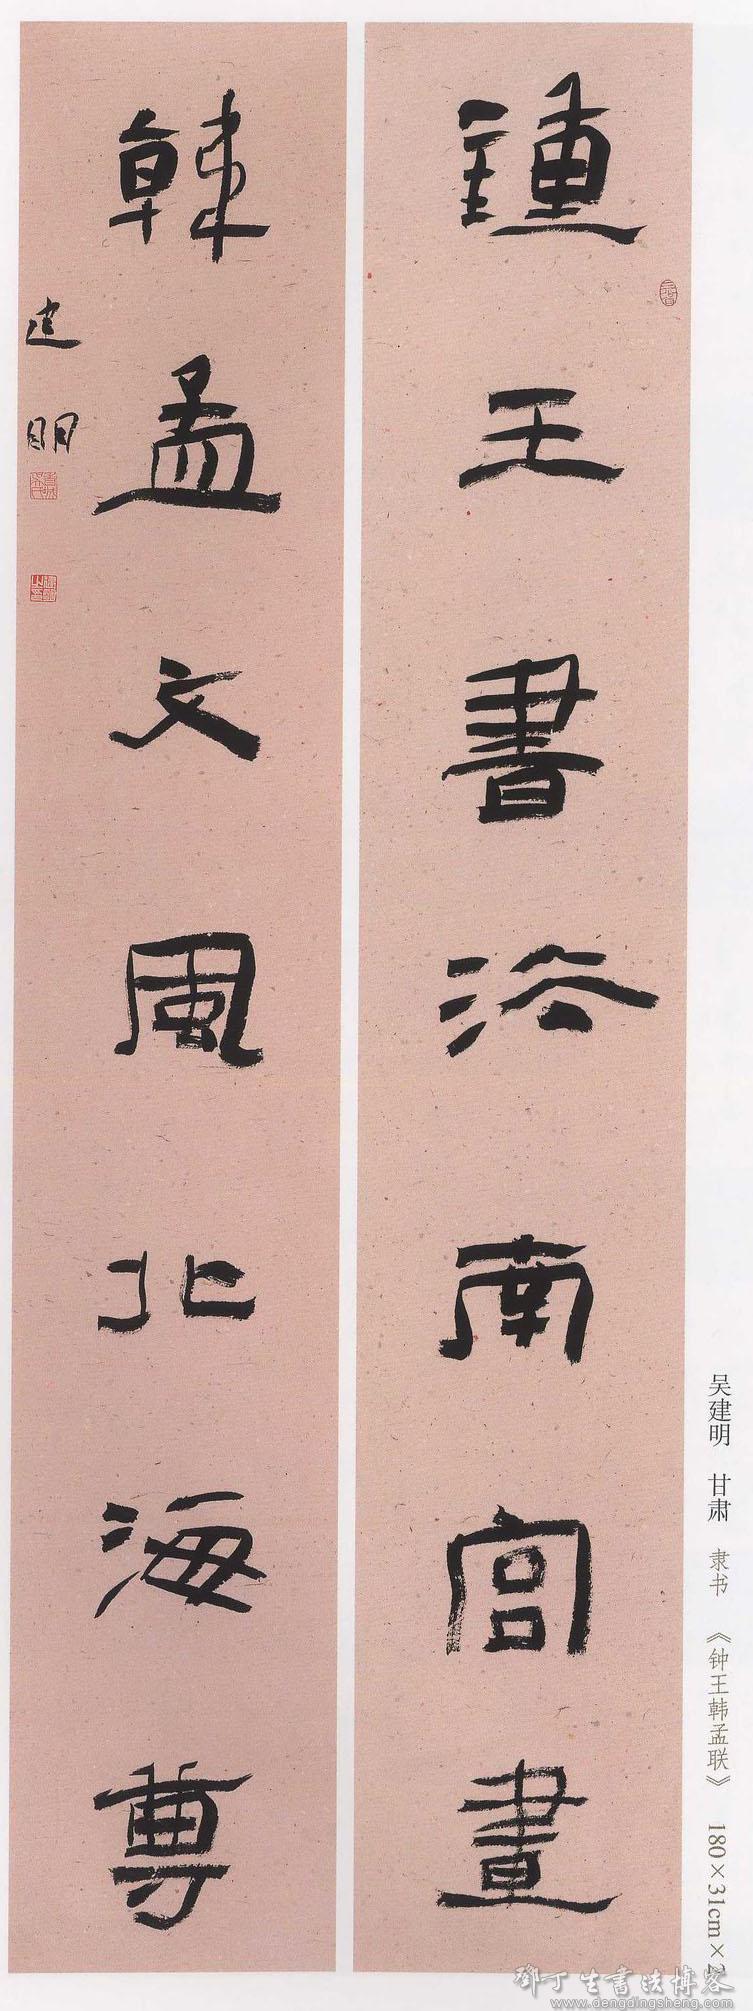 鍾王書法南宫畫
韓孟文風北海尊
建明
吴建明 甘肃 隶书 《钟王韩孟联》 180×31cm×2
邓丁生书法博客
www.dengdingsheng.com